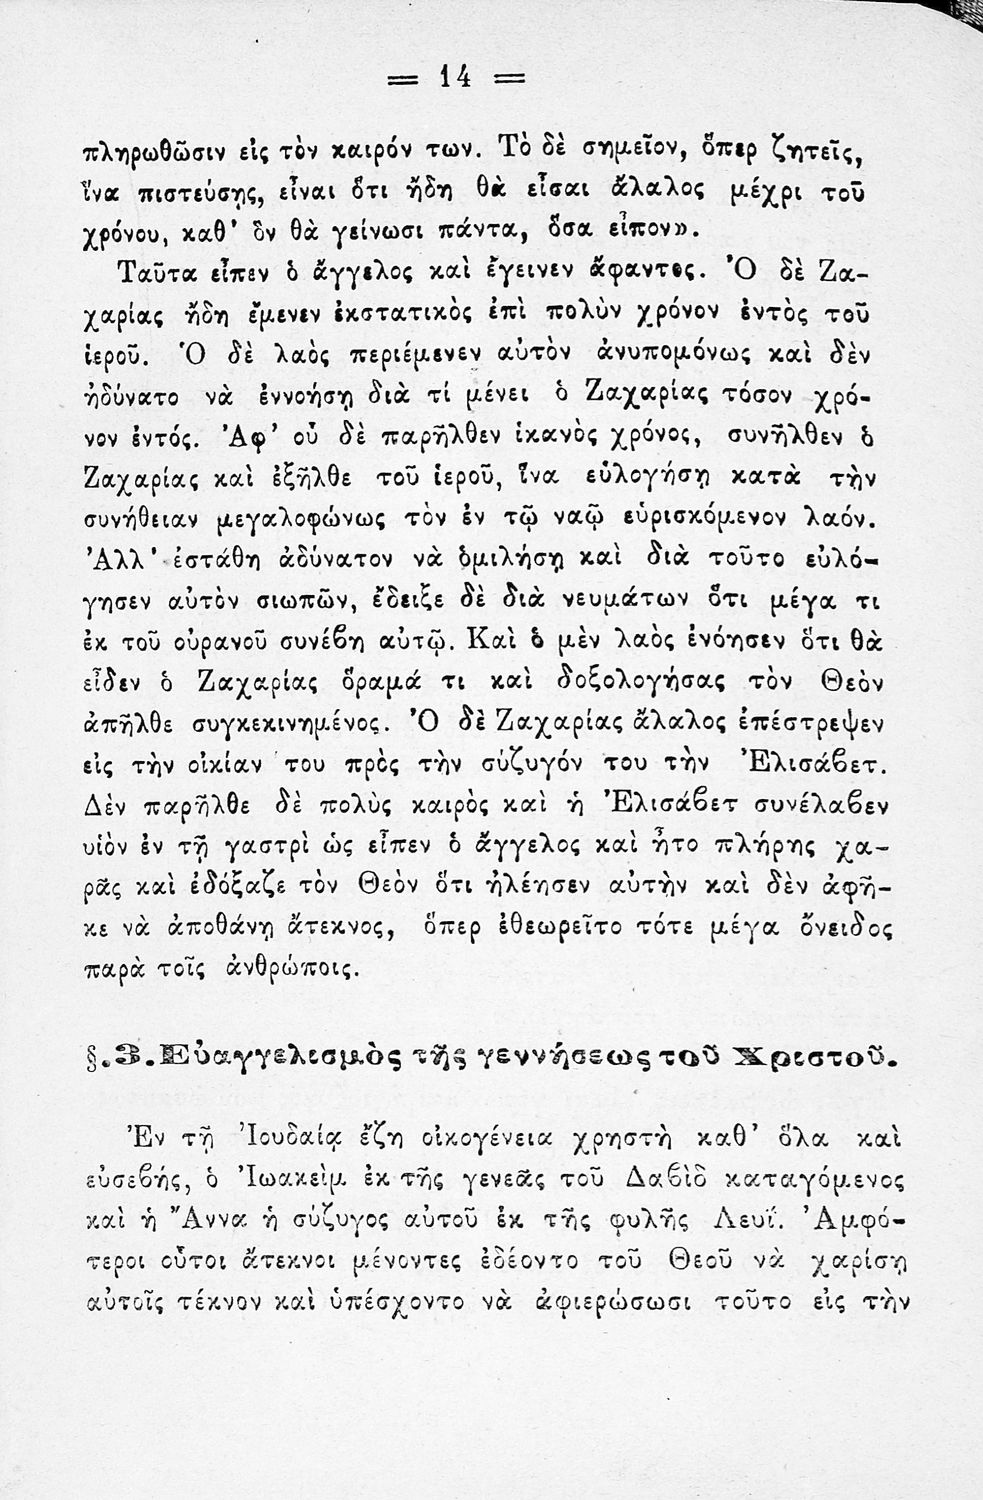 = 14 =
πληρωθῶσιν εἰς τὸν καιρόν των. Τὸ δὲ σημεῖον, ὅπερ ζητεῖς,
ἵνα πιστεύσῃς, εἶναι ὅτι ἤδη θὰ εἶσαι ἄλαλος μέχρι τοῦ
χρόνου, καθ' ὃν θὰ γείνωσι πάντα, ὅσα εἶπον».
Ταῦτα εἶπεν ὁ ἄγγελος καὶ ἔγεινεν ἄφαντος. Ὁ δὲ Ζα-
χαρίας ἤδη ἔμενεν ἐκστατικὸς ἐπὶ πολὺν χρόνον ἐντὸς τοῦ
ἱεροῦ. Ὁ δὲ λαὸς περιέμενεν αὐτὸν ἀνυπομόνως καὶ δὲν
ἠδύνατο νὰ ἐννοήσῃ διὰ τί μένει ὁ Ζαχαρίας τόσον χρό-
νον ἐντός. Ἀφ' οὗ δὲ παρῆλθεν ἱκανὸς χρόνος, συνῆλθεν ὁ
Ζαχαρίας καὶ ἐξῆλθε τοῦ ἱεροῦ, ἵνα εὐλογήσῃ κατὰ τὴν
συνήθειαν μεγαλοφώνως τὸν ἐν τῷ ναῷ εὑρισκόμενον λαόν.
Ἀλλ' ἐστάθη ἀδύνατον νὰ ὁμιλήσῃ καὶ διὰ τοῦτο εὐλό-
γησεν αὐτὸν σιωπῶν, ἔδειξε δὲ διὰ νευμάτων ὅτι μέγα τι
ἐκ τοῦ οὐρανοῦ συνέβη αὐτῷ. Καὶ ὁ μὲν λαὸς ἐνόησεν ὅτι θὰ
εἶδεν ὁ Ζαχαρίας ὅραμά τι καὶ δοξολογήσας τὸν Θεὸν
ἀπῆλθε συγκεκινημένος. Ὁ δὲ Ζαχαρίας ἄλαλος ἐπέστρεψεν
εἰς τὴν οἰκίαν του πρὸς τὴν σύζυγόν του τὴν Ἐλισάβετ.
Δὲν παρῆλθε δὲ πολὺς καιρὸς καὶ ἡ Ἐλισάβετ συνέλαβεν
υἱὸν ἐν τῇ γαστρὶ ὡς εἶπεν ὁ ἄγγελος καὶ ἦτο πλήρης χα-
ρᾶς καὶ ἐδόξαζε τὸν Θεὸν ὅτι ἠλέησεν αὐτὴν καὶ δὲν ἀφῆ-
κε νὰ ἀποθάνῃ ἄτεκνος, ὅπερ ἐθεωρεῖτο τότε μέγα ὄνειδος
παρὰ τοῖς ἀνθρώποις.
§.3. Εὐαγγελισμὸς τῆς γεννήσεως τοῦ Χριστοῦ.
Ἐν τῇ Ἰουδαίᾳ ἔζη οἰκογένεια χρηστὴ καθ' ὅλα καὶ
εὐσεβής, ὁ Ἰωακεὶμ ἐκ τῆς γενεᾶς τοῦ Δαβὶδ καταγόμενος
καὶ ἡ Ἄννα ἡ σύζυγος αὐτοῦ ἐκ τῆς φυλῆς Λευΐ. Ἀμφό-
τεροι οὗτοι ἄτεκνοι μένοντες ἐδέοντο τοῦ Θεοῦ νὰ χαρίσῃ
αὐτοῖς τέκνον καὶ ὑπέσχοντο νὰ ἀφιερώσωσι τοῦτο εἰς τὴν